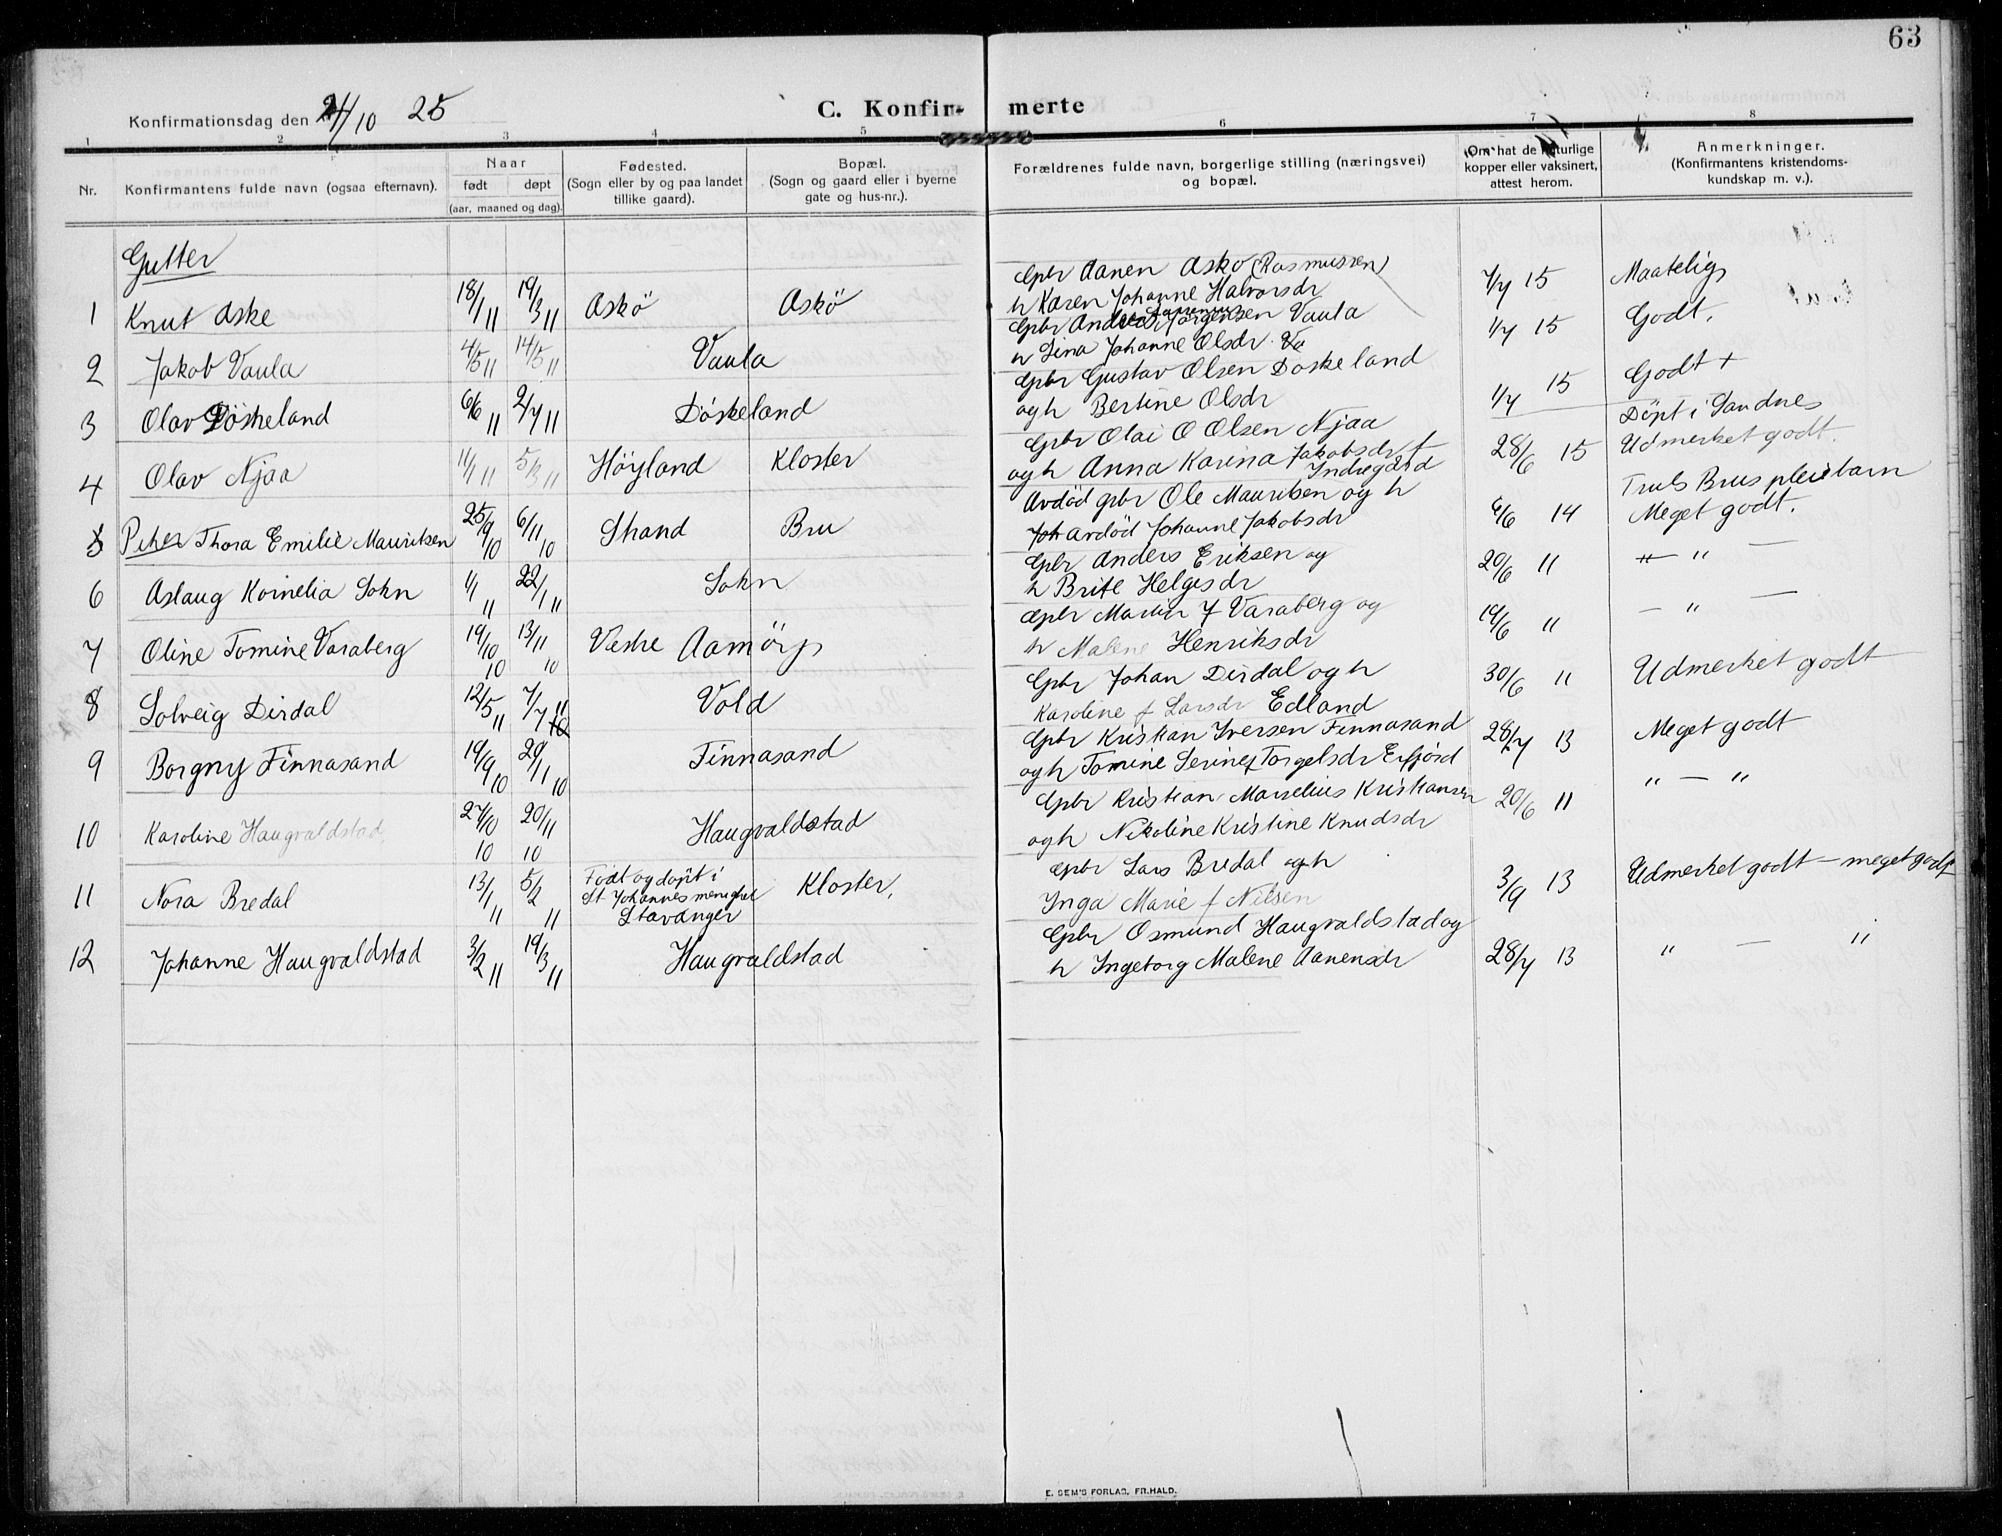 63
Konfirmationsdag den 4/10 25
C. Konfirmerte
1 2 3 4 5 6 7 8
Nr.
Konfirmantens fulde navn (ogsaa efternavn).
Naar
født døpt
(aar, maaned og dag).
Fødested.
(Sogn eller by og paa landet
tillike gaard).
Bopæl.
(Sogn og gaard eller i byerne
gate og hus-nr.).
Forældrenes fulde navn, borgerlige stilling (næringsvei)
og bopæl.
Om hat de naturlige
kopper eller vaksinert,
attest herom.
Anmerkninger.
(Konfirmantens kristendoms-
kundskap m. v.).
Gutter
1 Knut Aske 18/1 11 19/3 11 Askö Askö Gbr Aanen Askö (Rasmussen)
h Karen Johanne Halvorsdr 7/7 15 Maatelig
2 Jakob Vaula 4/5 11 14/5 11 Vaula Gbr Andreas Jörgensen Vaula
h Lina Johanne Olsdr 1/7 15 Godt.
3 Olav Döskeland 6/6 11 2/7 11 Döskeland Gbr Gustav Olsen Doskeland
og h Bertine Olsdr 1/7 15 Godt +
4 Olav Njaa 11/1 11 5/3 11 Höyland Kloster Gbr Olai O Olsen Njaa
og h Anna Karina Jakobsdr f
Indregård 28/6 15 Döpt i Sandnes
Udmerket godt.
5 Piker Thora Emilie Mauritsen 25/9 10 6/11 10 Strand Bru Avdöd gbr Ole Mauritsen og h
avdöd Johanne Jakobsdr 6/6 14 Truls Brus pleiebarn
Meget godt.
6 Aslaug Kornelia Sokn 1/1 11 22/1 11 Sokn Gbr Anders Eriksen og
h Brite Helgesdr 20/6 11 — " —
7 Oline Tomine Varaberg 19/10 10 13/11 10 Vestre Aamöy Gbr Martin J Varaberg og
h Malene Henriksdr 19/6 11 — " —
8 Solveig Dirdal 12/5 11 7/7 11 Vold Gbr Johan Dirdal og h
Karoline f Larsdr Edland 30/6 11 Udmerket godt
9 Borgny Finnasand 19/9 10 20/11 10 Finnasand Gbr Kristian Iversen Finnasand
og h Tomine Serine f Torgelsdr Erfjord 28/7 13 Meget godt
10 Karoline Haugvaldstad 27/10 10 20/11 10 Haugvaldstad Gbr Kristian Marselius Kristiansen
og h Nikoline Kristine Knudsdr 20/6 11 " — "
11 Nora Bredal 13/1 11 5/2 11 Födt og döpt i
St. Johannes menighet
Stavanger Kloster. Gbr Lars Bredal og h
Inga Marie f Nilsen 3/9 13 Udmerket godt — meget godt
12 Johanne Haugvaldstad 3/2 11 19/3 11 Haugvaldstad Gbr Osmund Haugvaldstad og
h Ingeborg Malene Aanensdr 28/7 13 " — "
E. SEM'S FORLAG, FR.HALD.